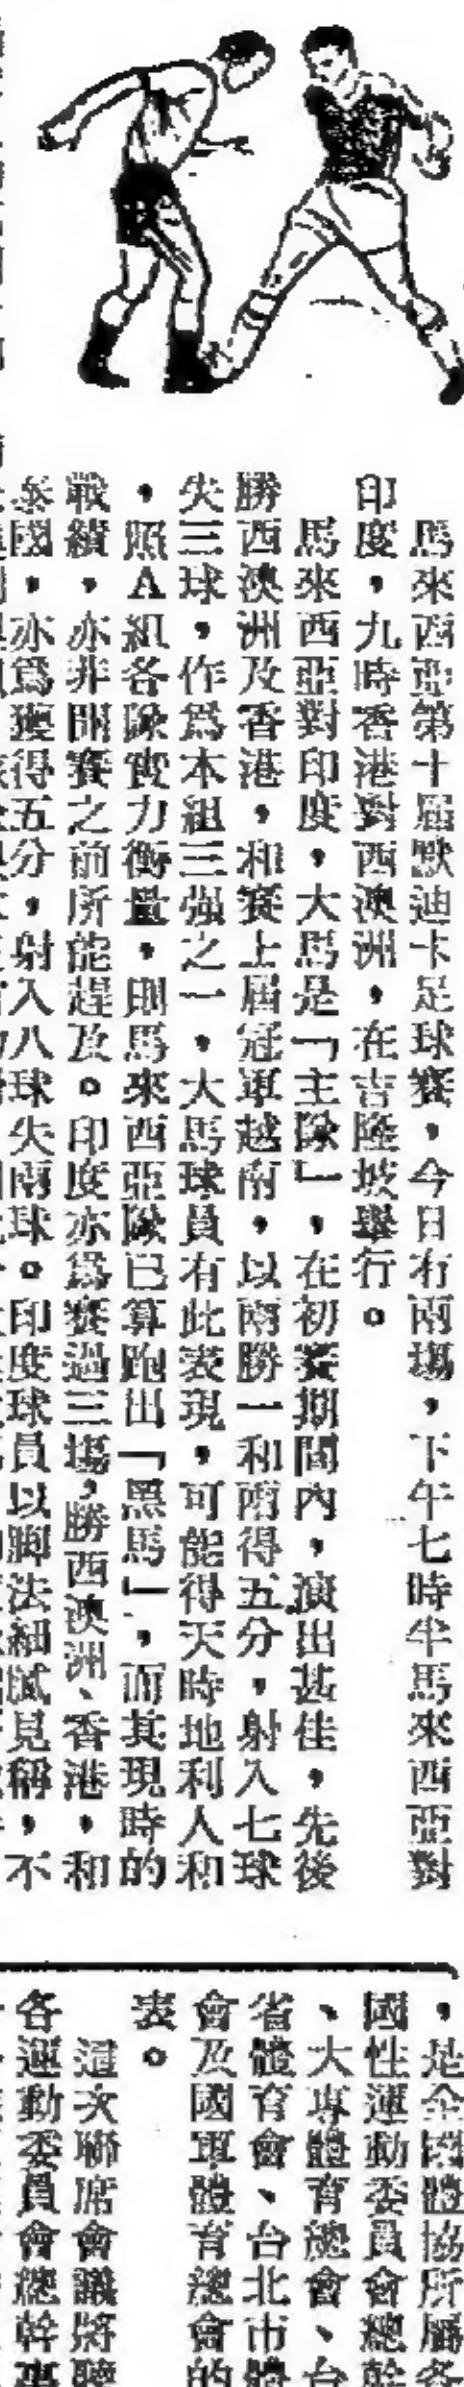 馬來西亞第十屆默迪卡足球賽，今日有兩場，下午七時半馬來西亞對
印度，九時香港對西澳洲，在吉隆坡舉行。
馬來西亞對印度，大馬是「主隊」，在初賽期間內，演出甚佳，先後
勝西澳洲及香港，和賽上屆冠軍越南，以兩勝一和兩得五分，射入七球
失三球，作爲本組三強之一，大馬球員有此表現，可能得天時地利人和
，照A組各隊實力衡量，則馬來西亞隊已算跑出「黑馬」，而其現時的
戰績，亦非開賽之前所能趕及。印度亦爲賽過三場，勝西澳洲、香港，和
泰國，亦爲獲得五分，射入八球失兩球。印度球員以脚法細膩見稱，不
，是全國體協所屬各
國性運動委員會總幹
、大專體育總會、台
省體育會、台北市體
會及國軍體育總會的
表。
這次聯席會議將聽
各運動委員會總幹事